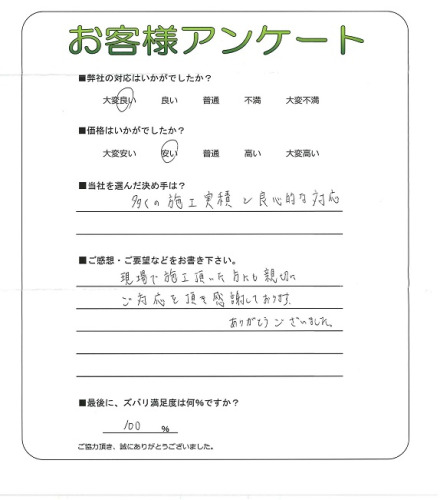 お客様アンケート
■弊社の対応はいかがでしたか？
大変良い 良い 普通 不満 大変不満
■価格はいかがでしたか？
大変安い 安い 普通 高い 大変高い
■当社を選んだ決め手は？
多くの施工実績と良心的な対応
■ご感想・ご要望などをお書き下さい。
現場で施工頂いた方にも親切に
ご対応を頂き感謝しております。
ありがとうございました。
■最後に、ズバリ満足度は何％ですか？
100 ％
ご協力頂き、誠にありがとうございました。